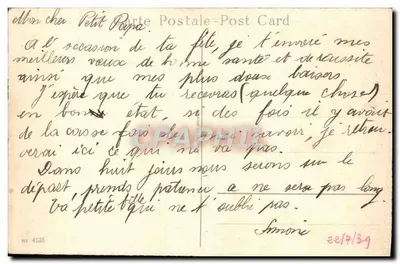 Carte Postale - Post Card
Mon cher Petit Papa.
A l'occasion de ta fête, je t'envoie mes
meilleurs vœux de bonne santé et de réussite
ainsi que mes plus doux baisers.
J'espère que tu recevras (quelque chose)
en bon état, si des fois il y avait
de la casse fais des
verai ici ce qui ne va pas.
Dans huit jours nous serons sur le
départ, prends patience a ne sera pas long.
Ta petite qui ne t'oublie pas.
Simone
22/7/39